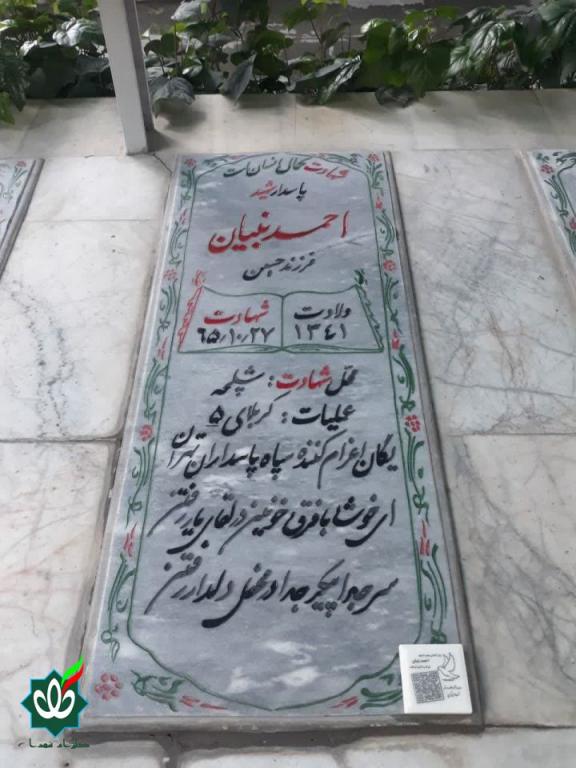 شهادت کمال انسان است
پاسدار شهید
احمد نبیان
فرزند حسین
ولادت
۱۳۴۱
شهادت
۶۵/۱۰/۲۷
محل شهادت: شلمچه
عملیات: کربلای ۵
یگان اعزام کننده سپاه پاسداران تهران
ای خوشا با فرق خونین در لقای یار رفتن
سر جدا پیکر جدا در محفل دلدار رفتن
احمد نبیان
گلزار شهدا